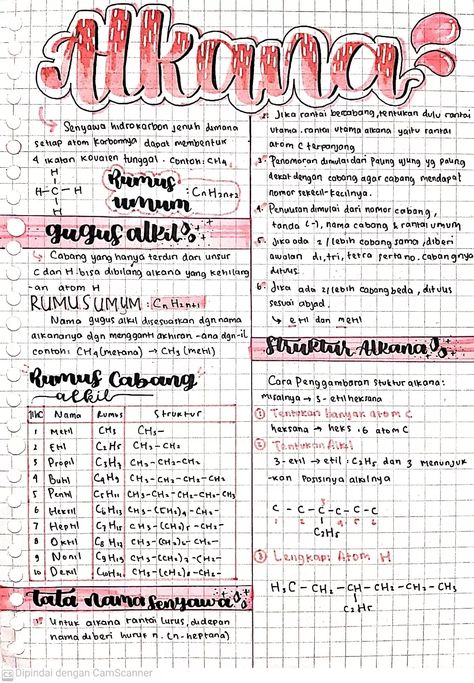 Alkana
Senyawa hidrokarbon jenuh dimana
setiap atom karbonnya dapat membentuk
4 ikatan kovalen tunggal. Contoh: CH4
H
H-C-H
H
Rumus
umum
: CnH2n+2
gugus alkil
Cabang yang hanya terdiri dari unsur
C dan H. bisa dibilang alkana yang kehilang-
an atom H
RUMUS UMUM : CnH2n+1
Nama gugus alkil disesuaikan dgn nama
alkananya dgn mengganti akhiran -ana dgn -il
contoh: CH4 (metana) → CH3 (metil)
Rumus Cabang
alkil
Nama Rumus Struktur
1 Metil CH3 CH3-
2 Etil C2H5 CH3-CH2-
3 Propil C3H7 CH3-CH2-CH2-
4 Butil C4H9 CH3-CH2-CH2-CH2-
5 Pentil C5H11 CH3-CH2-CH2-CH2-CH2-
6 Heksil C6H13 CH3-(CH2)4-CH2-
7 Heptil C7H15 CH3-(CH2)5-CH2-
8 Oktil C8H17 CH3-(CH2)6-CH2-
9 Nonil C9H19 CH3-(CH2)7-CH2-
10 Dekil C10H21 CH3-(CH2)8-CH2-
Tata nama senyawa
1. Untuk alkana rantai lurus, didepan
nama diberi huruf n. (n-heptana)
2. Jika rantai bercabang, tentukan dulu rantai
utama. rantai utama alkana yaitu rantai
atom C terpanjang
3. Penomoran dimulai dari paling ujung yg paling
dekat dengan cabang agar cabang mendapat
nomor sekecil-kecilnya.
4. Penulisan dimulai dari nomor cabang,
tanda (-), nama cabang & rantai umum
5. Jika ada 2/lebih cabang sama, diberi
awalan di, tri, tetra pertano. cabangnya
ditulis
6. Jika ada 2/lebih cabang beda, ditulis
sesuai abjad.
↳ etil dan metil
Struktur Alkana
Cara Penggambaran stuktur alkana:
misalnya → 3-etil heksana
1 Tentukan banyak atom C
heksana → heks: 6 atom C
2 Tentukan Alkil
3-etil → etil: C2H5 dan 3 menunjuk
-kan posisinya alkilnya
C - C - C - C - C - C
1 2 3 4 5 6
C2H5
3 Lengkapi Atom H
H3C-CH2-CH-CH2-CH2-CH3
C2H5
CS Dipindai dengan CamScanner